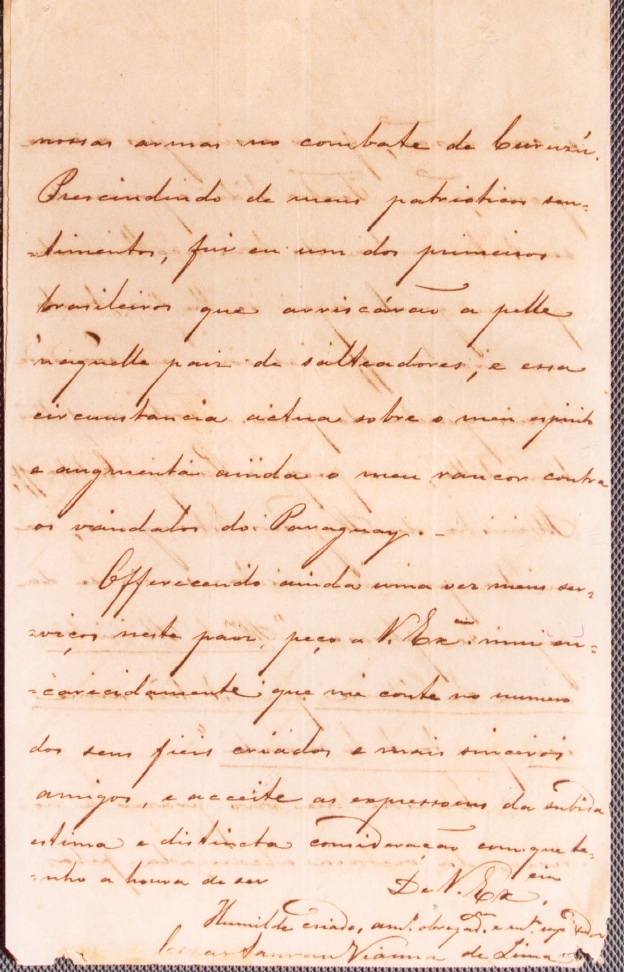 nossas armas no combate de Curuzú.
Prescindindo de meus patrioticos sen=
=timentos, fui eu um dos primeiros
brasileiros que arriscárão a pelle
n'aquelle paiz de salteadores, e essa
circumstancia actua sobre o meu espirito
e augmenta ainda o meu rancor contra
os vandalos do Paraguay. _
Offerecendo ainda uma vez meus ser=
=viços neste paiz, peço a V. Ex.cia mui en=
=carecidamente que me conte no numero
dos seus fieis criados e mais sinceiros
amigos, e acceite as expressoens da subida
estima e distincta consideração com que te=
=nho a honra de ser De V. Ex.cia
Humilde criado, am.o obrigad.o e
Vianna de Lima